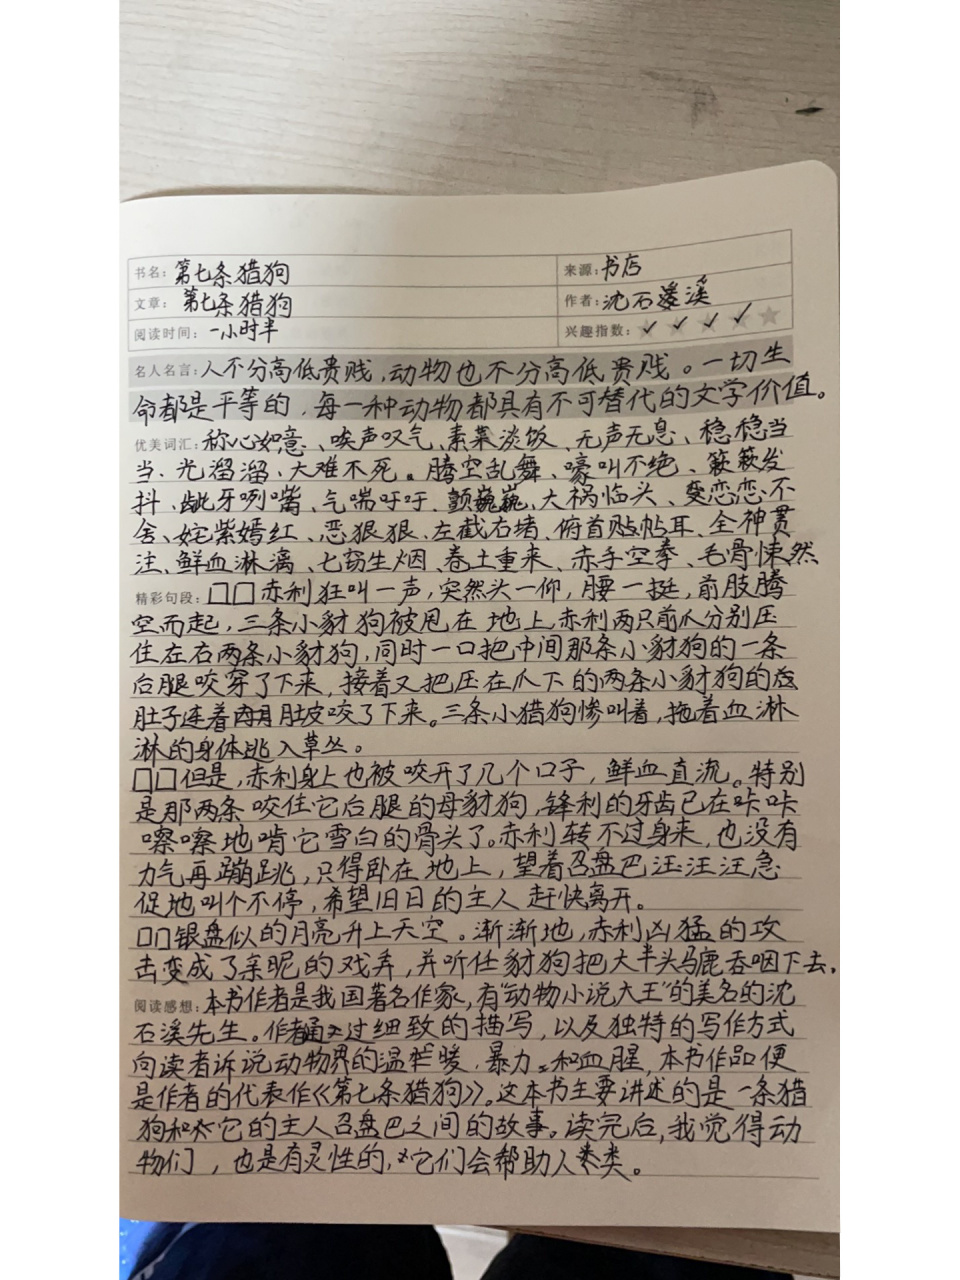 书名：第七条猎狗 来源：书店
文章：第七条猎狗 作者：沈石溪
阅读时间：一小时半 兴趣指数：✓✓✓✓
名人名言：人不分高低贵贱，动物也不分高低贵贱。一切生
命都是平等的，每一种动物都具有不可替代的文学价值。
优美词汇：称心如意、唉声叹气、素菜淡饭、无声无息、稳稳当
当、光溜溜、大难不死。腾空乱舞、嚎叫不绝、簌簌发
抖、龇牙咧嘴、气喘吁吁、颤巍巍、大祸临头、恋恋不
舍、姹紫嫣红、恶狠狠、左截右堵、俯首贴耳、全神贯
注、鲜血淋漓、七窍生烟、卷土重来、赤手空拳、毛骨悚然
精彩句段：口口赤利狂叫一声，突然头一仰，腰一挺，前肢腾
空而起，三条小豺狗被甩在地上，赤利两只前爪分别压
住左右两条小豺狗，同时一口把中间那条小豺狗的一条
后腿咬穿了下来，接着又把压在爪下的两条小豺狗的
肚子连着肚皮咬了下来。三条小猎狗惨叫着，拖着血淋
淋的身体逃入草丛。
口口但是，赤利身上也被咬开了几个口子，鲜血直流。特别
是那两条咬住它后腿的母豺狗，锋利的牙齿已在咔咔
嚓嚓地啃它雪白的骨头了。赤利转不过身来，也没有
力气再蹦跳，只得卧在地上，望着召盘巴汪汪汪急
促地叫个不停，希望旧日的主人赶快离开。
口口银盘似的月亮升上天空。渐渐地，赤利凶猛的攻
击变成了亲昵的戏弄，并听任豺狗把大半头马鹿吞咽下去。
阅读感想：本书作者是我国著名作家，有“动物小说大王”的美名的沈
石溪先生。作者通过细致的描写，以及独特的写作方式
向读者诉说动物界的温暖、暴力和血腥，本书作品便
是作者的代表作《第七条猎狗》。这本书主要讲述的是一条猎
狗和它的主人召盘巴之间的故事。读完后，我觉得动
物们，也是有灵性的，它们会帮助人类。